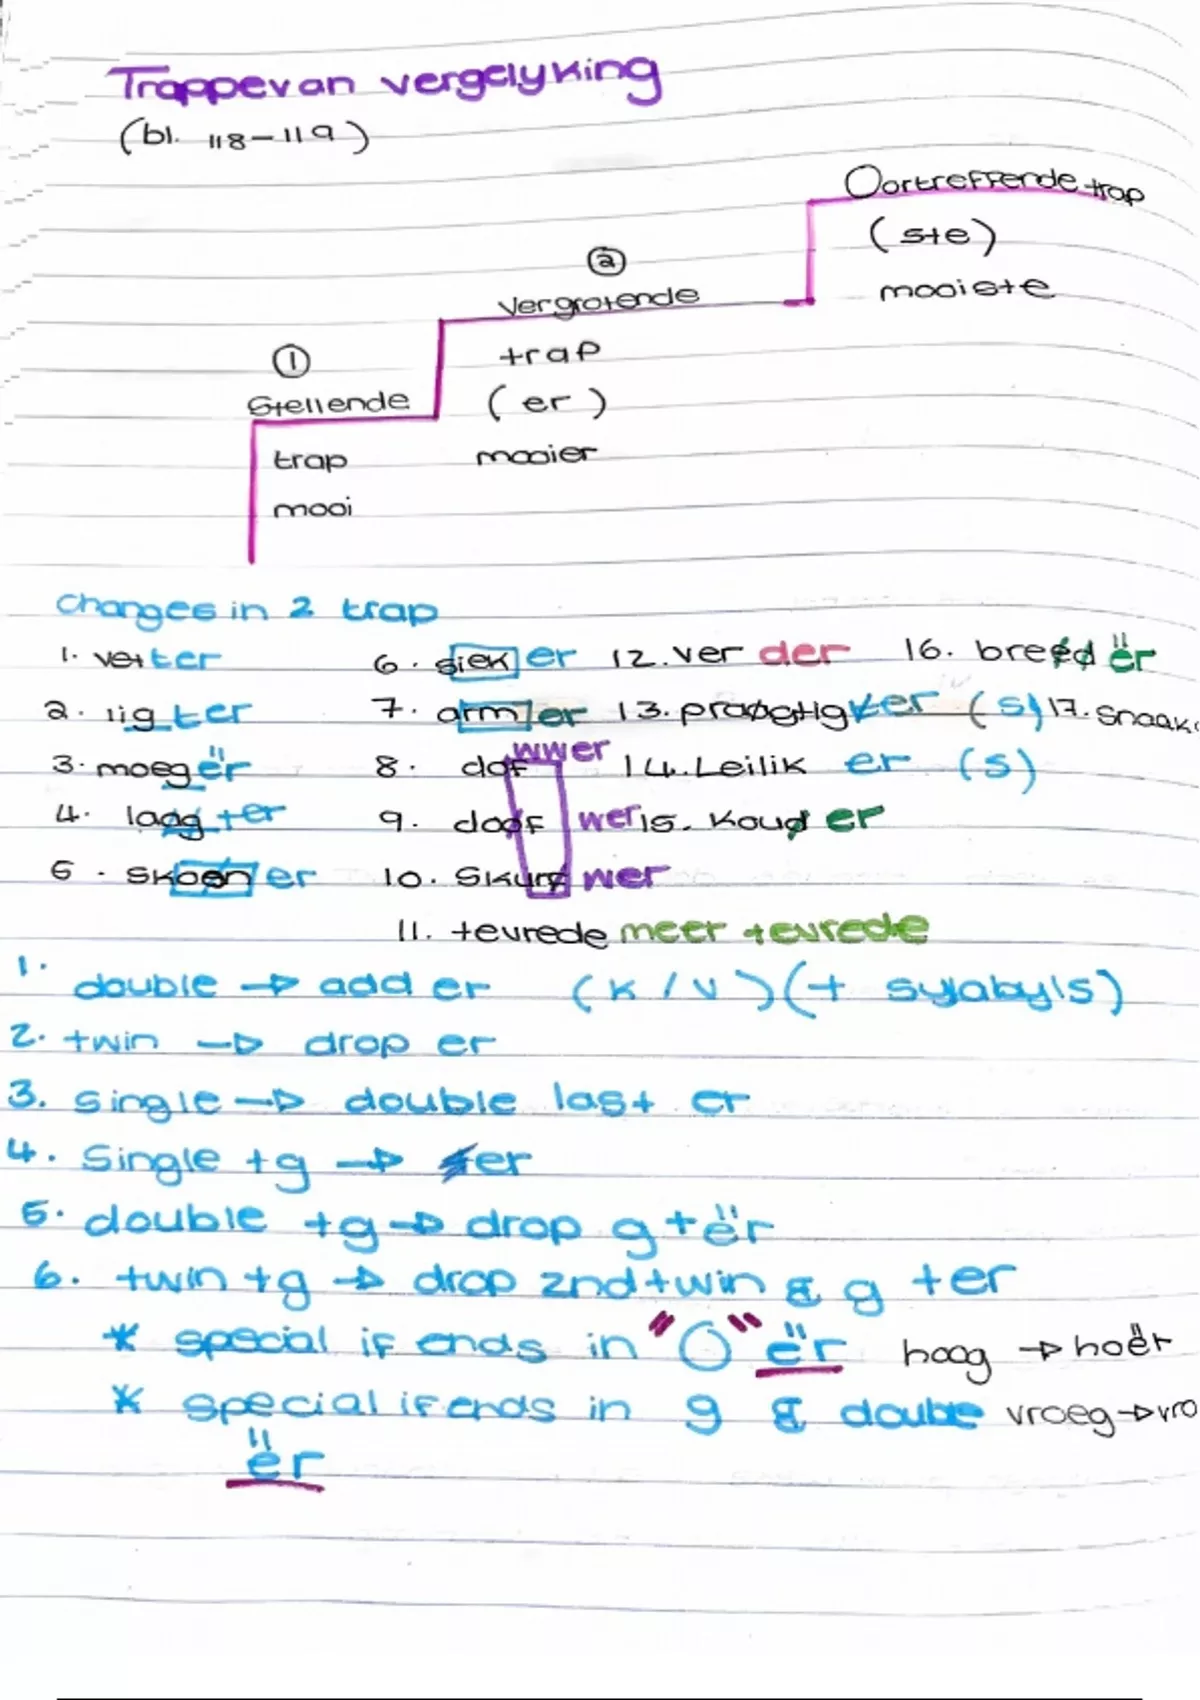 Trappe van vergelyking
(bl. 118-119)
Oortreffende trap
(ste)
mooiste
②
Vergrotende
trap
(er)
mooier
①
Stellende
trap
mooi
Changes in 2 trap
1. vetter
6. siek er
12. ver der
16. breed ër
2. lig ter
7. arm er
13. pragtig er (s)
17. snaaks
3. moeg ër
8. dof wwer
14. Leilik er (s)
4. laag ter
9. doof wer
15. koud er
5. skoon er
10. Skurf wer
11. tevrede meer tevrede
1. double → add er (k/v)(+ syabyls)
2. twin → drop er
3. single → double last er
4. Single +g → er
5. double +g → drop g + ër
6. twin +g → drop 2nd twin & g +er
* special if ends in "O" ër hoog → hoër
* special if ends in g & double vroeg → vro
ër